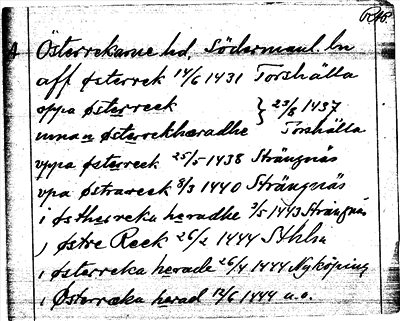 RAp
Österrekarne hd, Södermanl. ln
aff østerrek 14/6 1431 Torshälla
oppa østerreek } 23/8 1437
innan østerrekhæradhe Torshälla
vppa østerreek 25/5 1438 Strängnäs
vpa østrareek 8/3 1440 Strängnäs
i østherreka heradhe 3/5 1443 Strängnäs
j østre Reek 26/2 1444 Sthlm
i østerreka herade 26/4 1444 Nyköping
i Østerræka herad 12/6 1444 u.o.